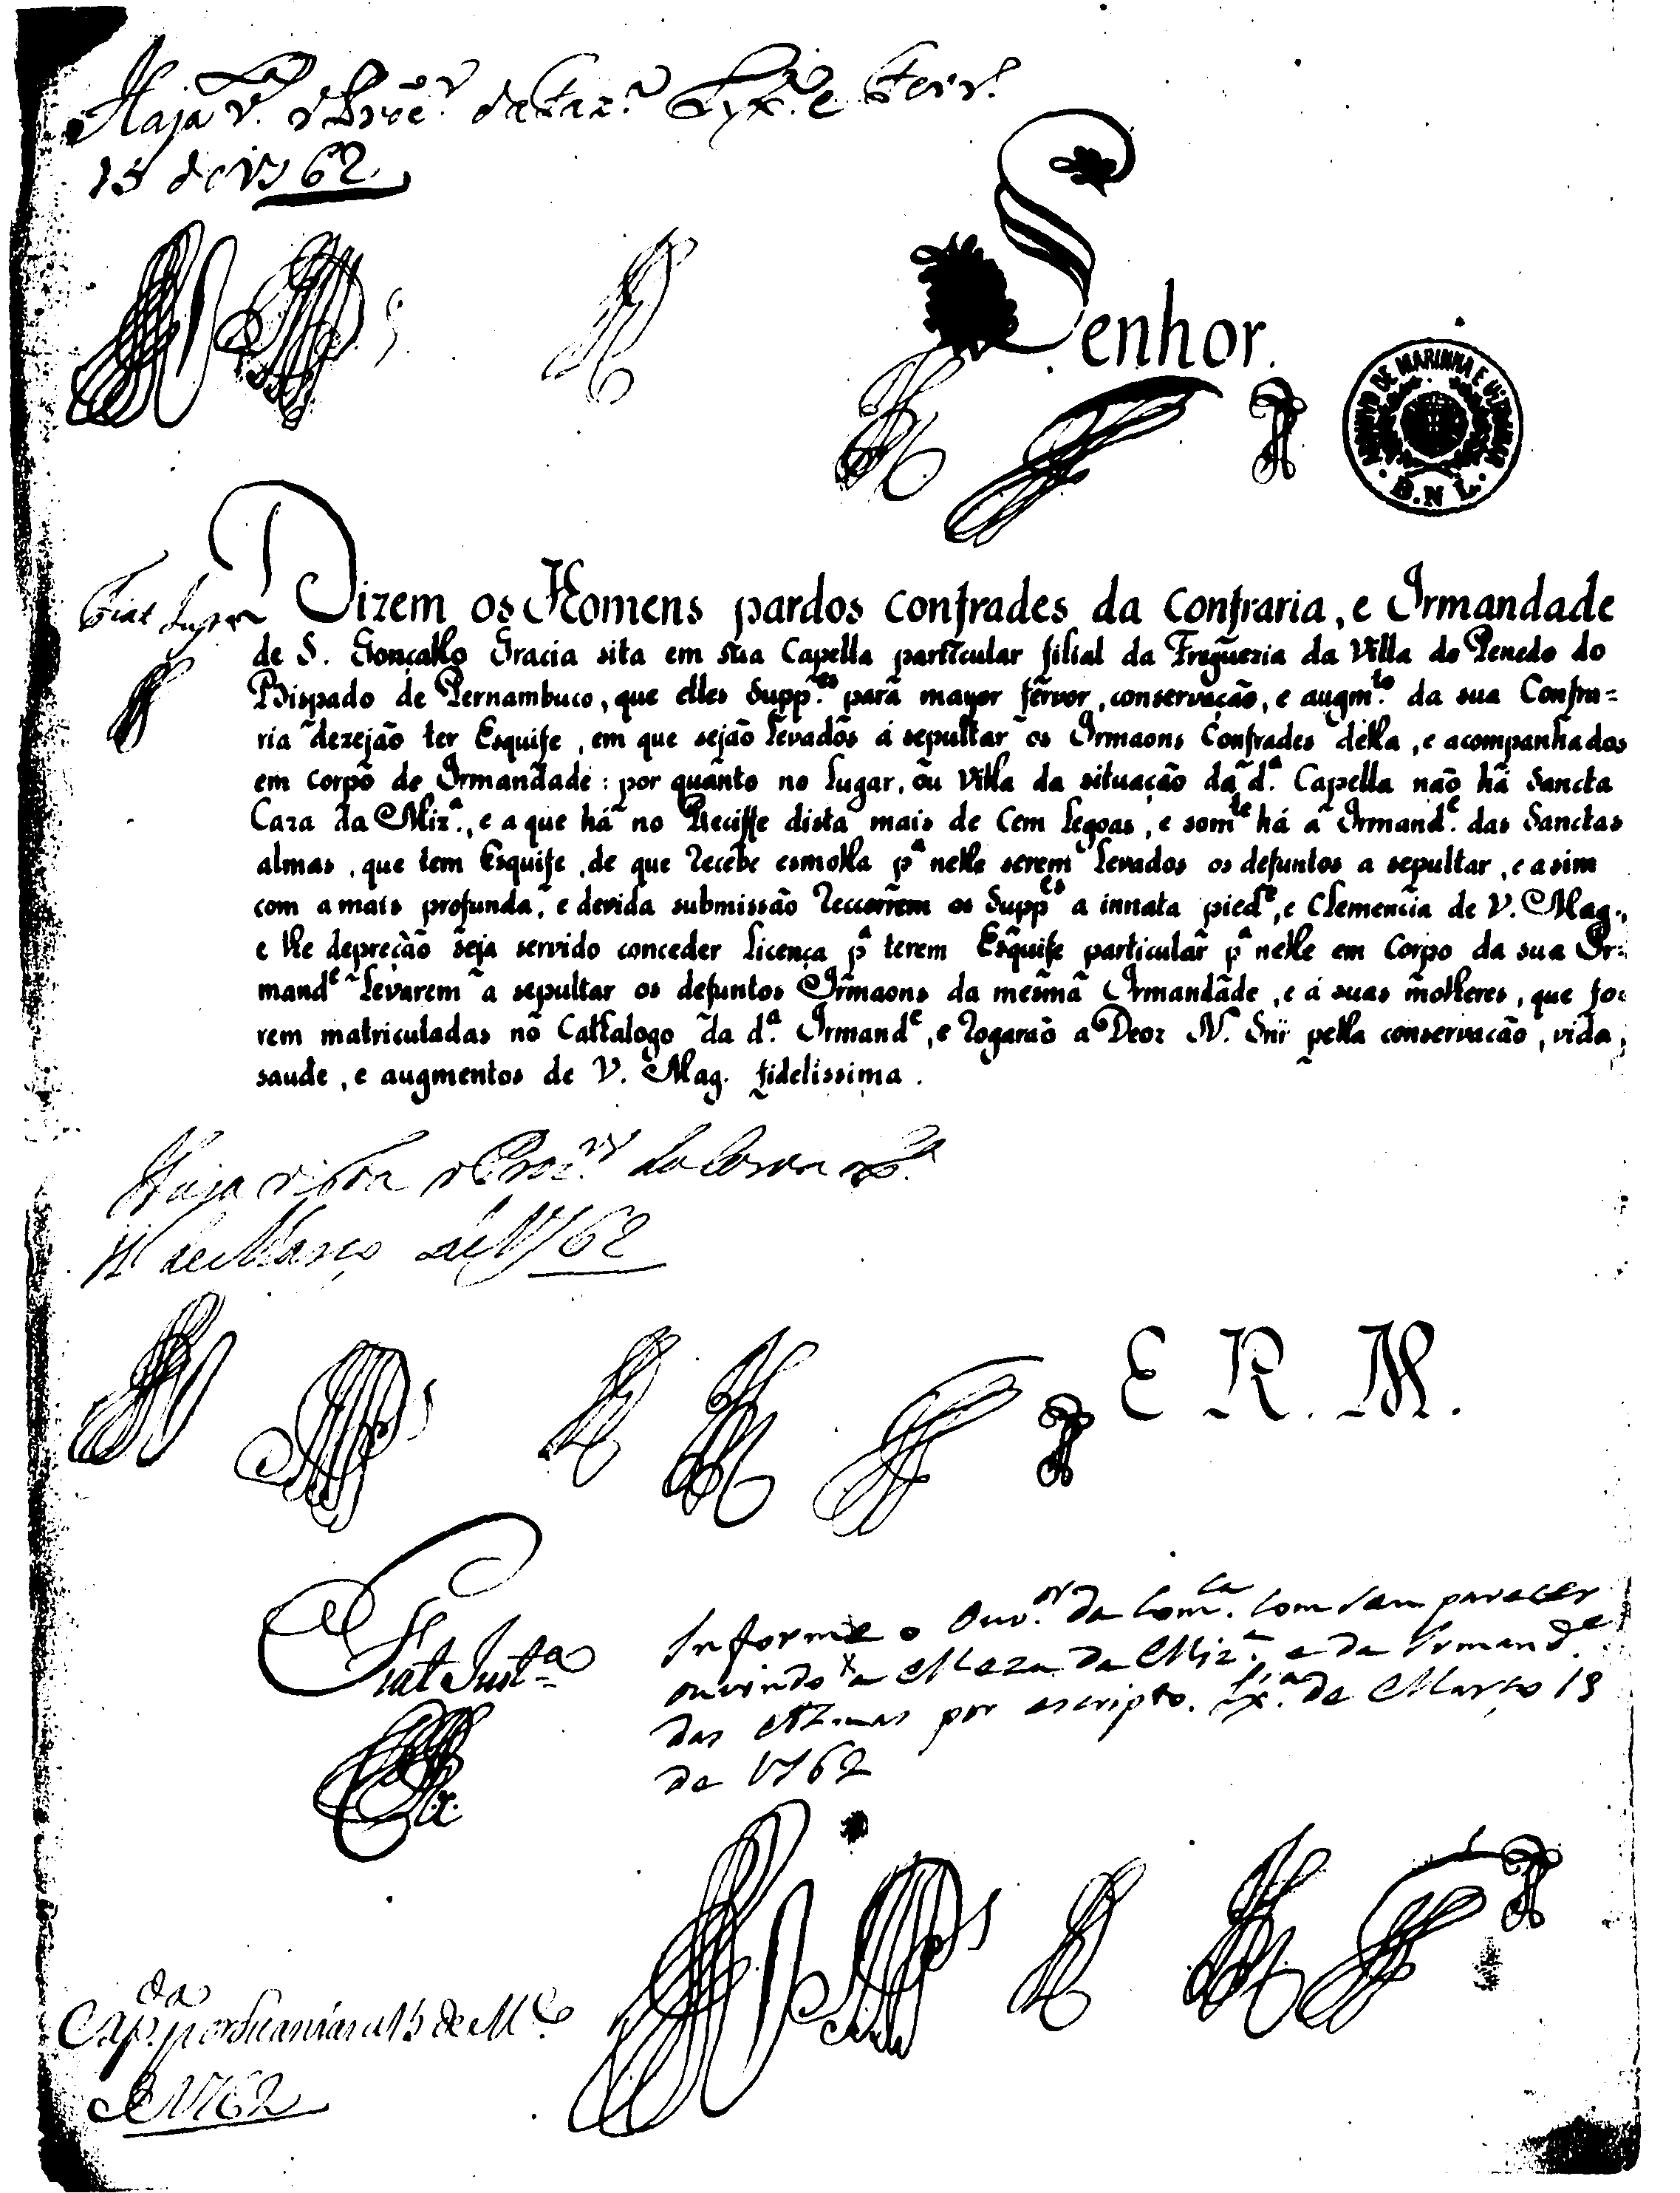 Haja v.ta o Proc.or da Faz.a Lx.a e Fevr.o
15 de 1762
Senhor.
MARINHA E ULTRAMAR
B.N.L.
Dizem os Homens pardos confrades da Confraria, e Irmandade
de S. Gonçallo Gracia sita em sua Capella particular filial da Freguezia da Villa do Penedo do
Bispado de Pernambuco, que elles Supp.es para mayor fervor, conservação, e augm.to da sua Confra=
ria dezejão ter Esquife, em que sejão levados á sepultar os Irmaons Confrades della, e acompanhados
em corpo de Irmandade: por quanto no lugar, ou Villa da situação da d.a Capella não há Sancta
Caza da Miz.a, e a que há no Reciffe dista mais de Cem legoas, e som.te há a Irmand.e das Sanctas
almas, que tem Esquife, de que recebe esmolla p.a nelle serem levados os defuntos a sepultar, e asim
com a mais profunda, e devida submissão reccorrem os Supp.es a innata pied.e, e Clemencia de V. Mag.,
e lhe depreção seja servido conceder licença p.a terem Esquife particular p.a nelle em Corpo da sua Ir=
mand.e levarem a sepultar os defuntos Irmaons da mesma Irmandade, e á suas molheres, que fo=
rem matriculadas no Cathalogo da d.a Irmand.e, e rogarão a Deoz N. Snr pella conservacão, vida,
saude, e augmentos de V. Mag. fidelissima.
Haja vista o Proc.or da Coroa Lx.a
11 de Março de 1762
E R. M.
Fiat Just.a
Informe o Ouv.or da Com.ca com seu parecer
ouvindo a Meza da Miz.a e da Irmand.e
das Almas por escripto. Lx.a de Março 13
de 1762
Exp.da por duas vias a 15 de M.ço
de 1762